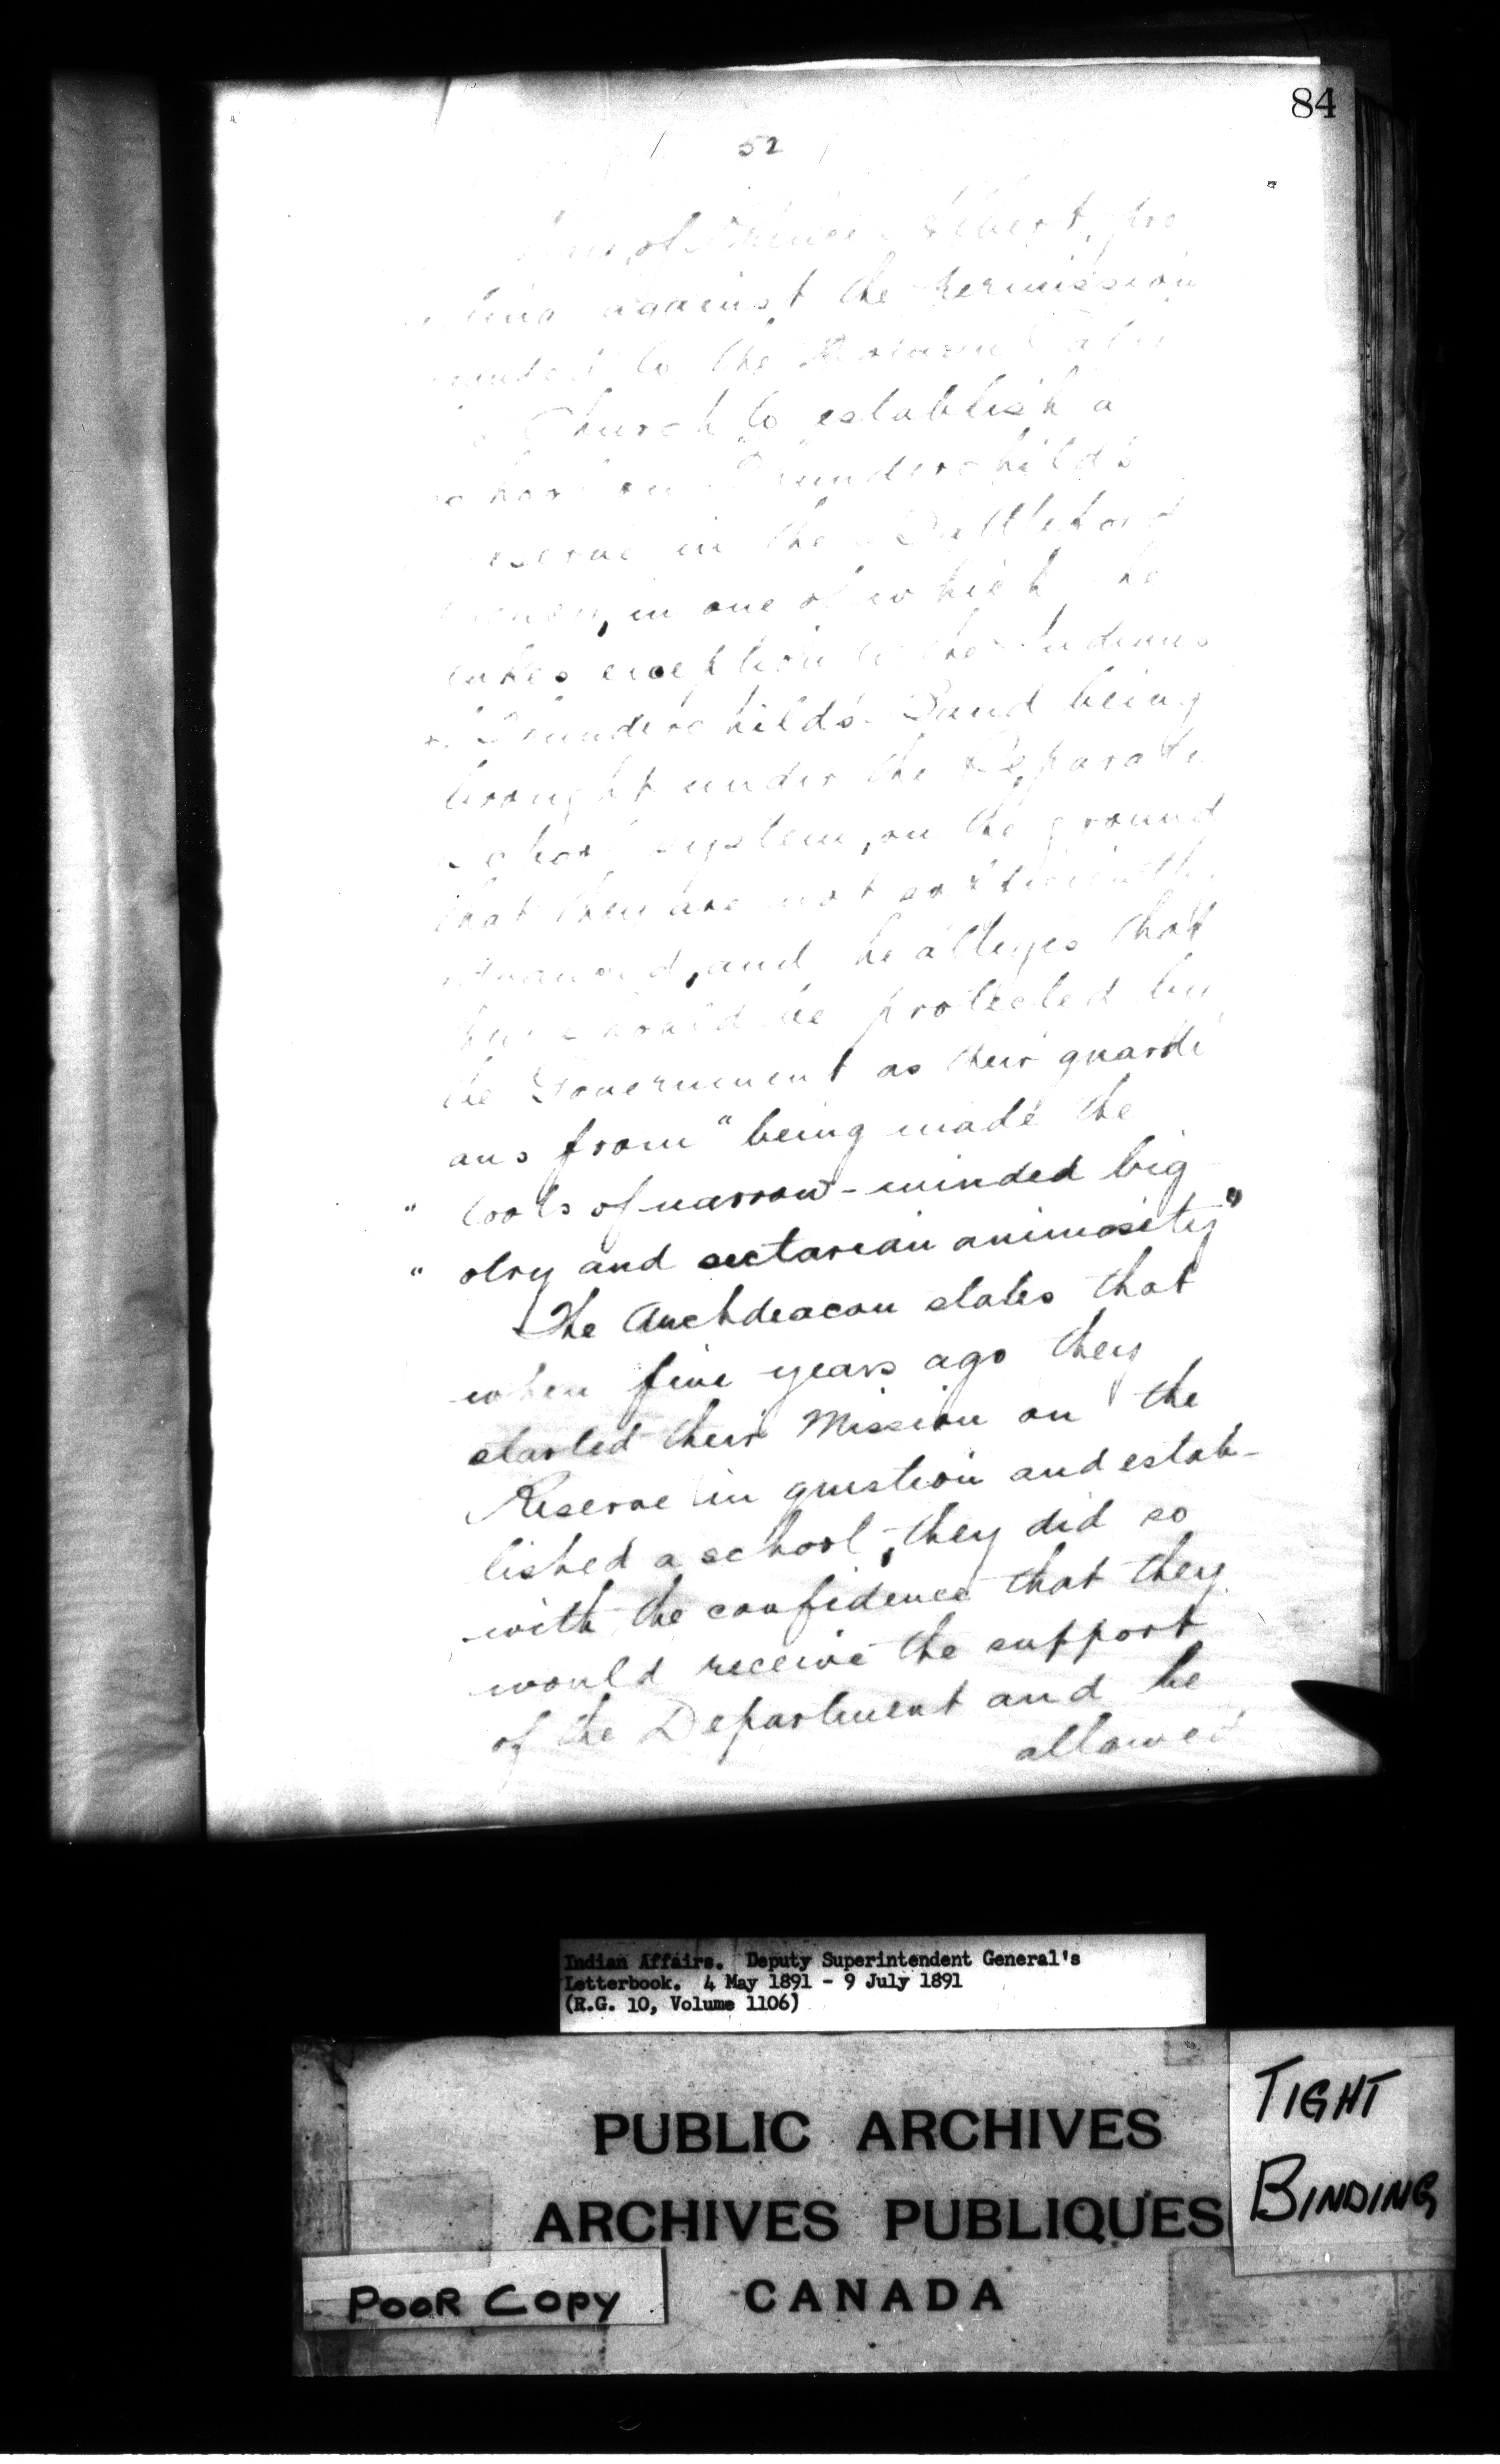 84
52
of Prince Albert, pro
against the permission
to the Roman Cath
Church to establish a
on Thunderchild's
in the Battleford
in one of which he
takes exception to the Indians
Thunderchild's Band being
brought under the Separate
School system, on the ground
that they are not sufficiently
advanced, and he alleges that
they should be protected by
the Government as their guardi
ans from "being made the
" tools of narrow-minded big
" otry and sectarian animosity"
The Archdeacon states that
when five years ago they
started their Mission on the
Reserve in question and estab-
lished a school, they did so
with the confidence that they
would receive the support
of the Department and be
allowed
Indian Affairs. Deputy Superintendent General's
Letterbook. 4 May 1891 - 9 July 1891
(R.G. 10, Volume 1106)
PUBLIC ARCHIVES
ARCHIVES PUBLIQUES
CANADA
TIGHT
BINDING
POOR COPY